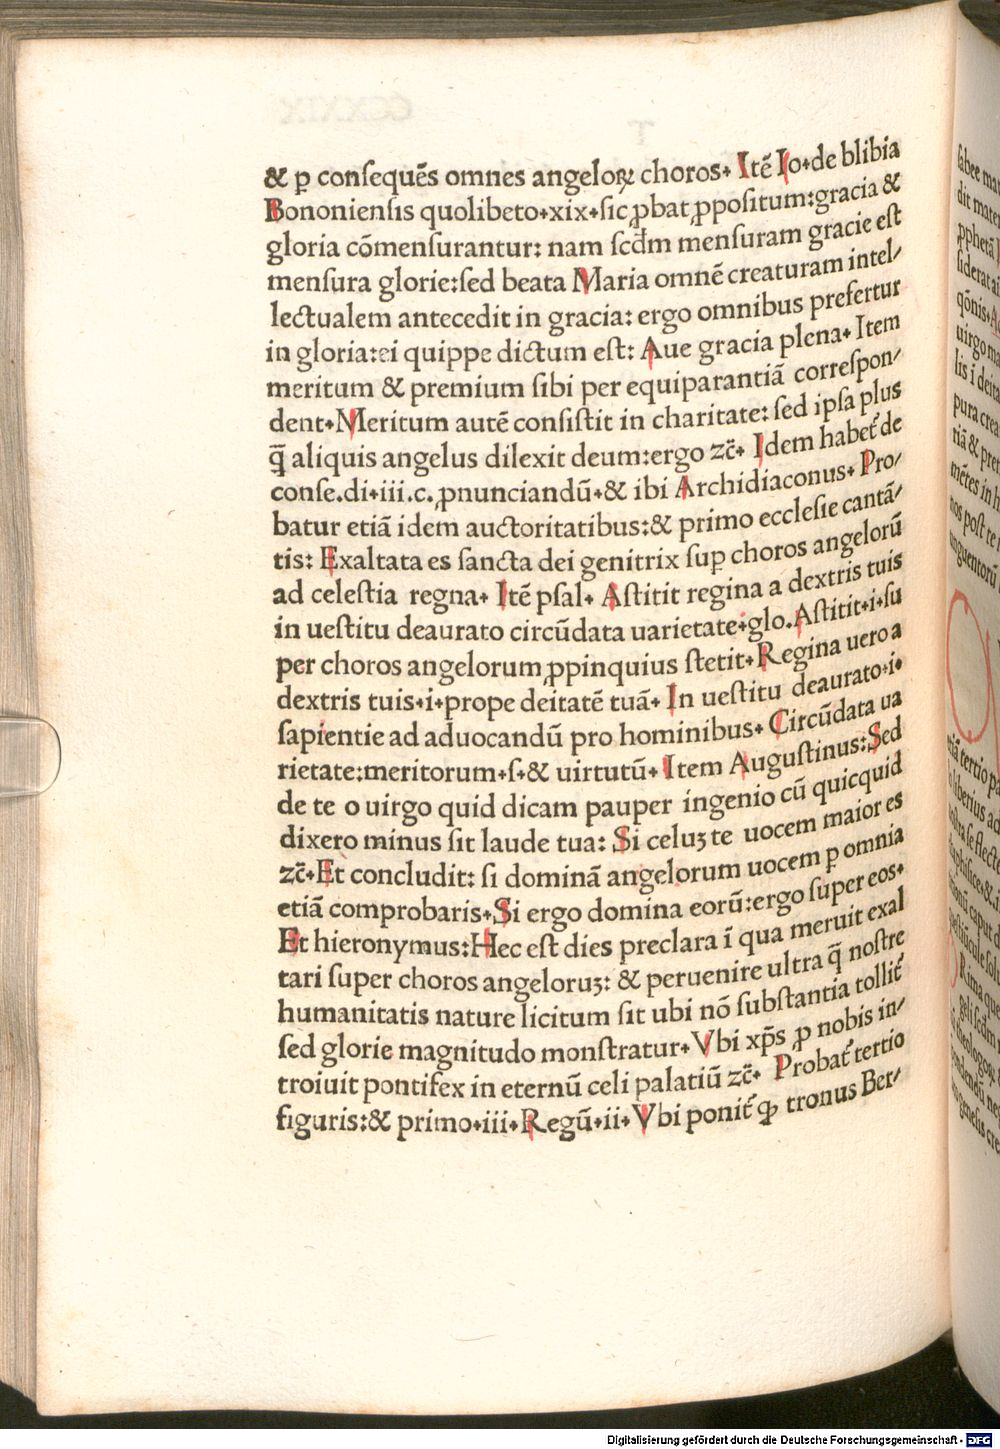 & ꝑ conſequẽs omnes angeloꝝ choros. Itẽ Io.de blibia
Bononienſis quolibeto.xix.ſic ꝓbat ꝓpoſitum:gracia &
gloria cõmenſurantur: nam ſcđm menſuram gracie eſt
menſura glorie:ſed beata Maria omnẽ creaturam intel/
lectualem antecedit in gracia: ergo omnibus prefertur
in gloria:ei quippe dictum eſt: Aue gracia plena. Item
meritum & premium ſibi per equiparantiã correſpon/
dent.Meritum autẽ conſiſtit in charitate: ſed ipſa plus
q̃ aliquis angelus dilexit deum:ergo zc̃. Idem habet᷑ de
conſe.di.iii.c.ꝓnunciandũ.& ibi Archidiaconus. Pro/
batur etiã idem auctoritatibus:& primo eccleſie cantã/
tis: Exaltata es ſancta dei genitrix ſuꝑ choros angelorũ
ad celeſtia regna. Itẽ pſal. Aſtitit regina a dextris tuis
in ueſtitu deaurato circũdata uarietate.glo.Aſtitit.i.ſu
per choros angelorum ꝓpinquius ſtetit.Regina uero a
dextris tuis.i.prope deitatẽ tuã. In ueſtitu deaurato.i.
ſapientie ad aduocandũ pro hominibus. Circũdata ua
rietate:meritorum.ſ.& uirtutũ. Item Auguſtinus:Sed
de te o uirgo quid dicam pauper ingenio cũ quicquid
dixero minus ſit laude tua: Si celuꝫ te uocem maior es
zc̃.Et concludit: ſi dominã angelorum uocem ꝑ omnia
etiã comprobaris.Si ergo domina eorũ:ergo ſuper eos.
Et hieronymus:Hec eſt dies preclara ĩ qua meruit exal
tari ſuper choros angeloruꝫ: & peruenire ultra q̃ noſtre
humanitatis nature licitum ſit ubi nõ ſubſtantia tollit᷑
ſed glorie magnitudo monſtratur.Vbi xp̃s ꝑ nobis in/
troiuit pontifex in eternũ celi palatiũ zc̃. Probat᷑ tertio
figuris:& primo.iii.Regũ.ii.Vbi ponit᷑ ꝙ tronus Ber/
Digitalisierung gefördert durch die Deutsche Forschungsgemeinschaft - DFG